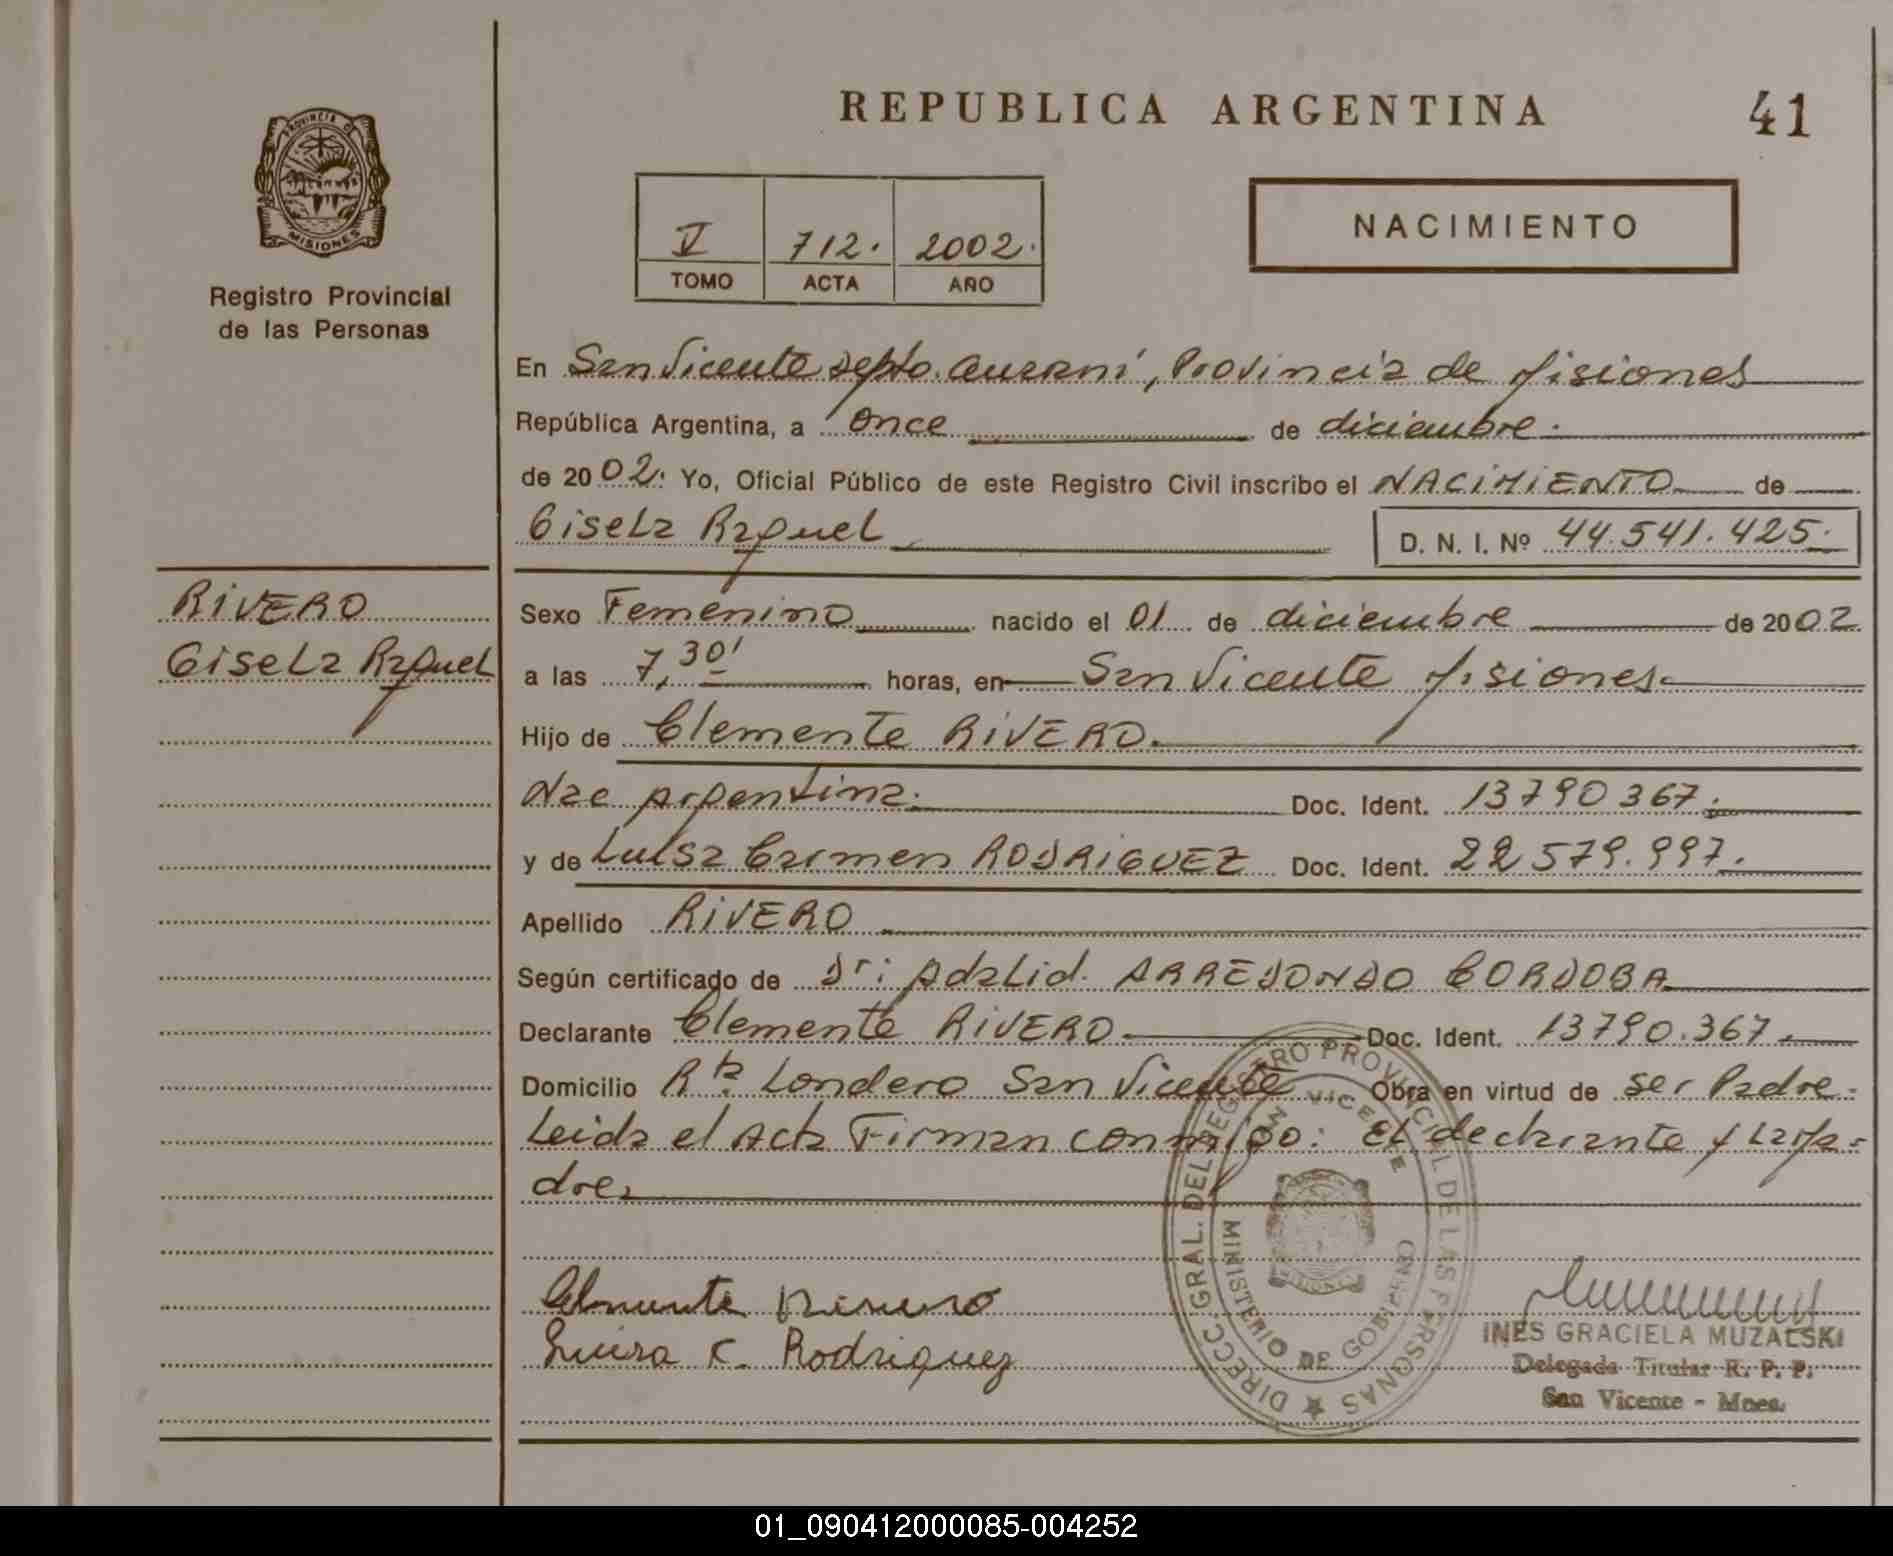 REPUBLICA ARGENTINA
41
PROVINCIA DE MISIONES
Registro Provincial
de las Personas
V 712. 2002.
TOMO ACTA AÑO
NACIMIENTO
En San Vicente Depto. Guaraní, Provincia de Misiones
República Argentina, a once de diciembre.
de 2002. Yo, Oficial Público de este Registro Civil inscribo el NACIMIENTO de
Gisela Raquel D. N. I. Nº 44.541.425.
RIVERO
Gisela Raquel
Sexo Femenino nacido el 01 de diciembre de 2002
a las 7,30' horas, en San Vicente Misiones
Hijo de Clemente RIVERO.
Nac Argentina. Doc. Ident. 13790367.
y de Luisa Carmen RODRIGUEZ Doc. Ident. 22579.997.
Apellido RIVERO
Según certificado de Dr: Adalid ARREDONDO CORDOBA
Declarante Clemente RIVERO Doc. Ident. 13790.367.
Domicilio Rta Londero San Vicente Obra en virtud de ser Padre-
Leida el Acta Firman conmigo: El declarante y La Ma-
dre
Clemente Rivero
Luisa C. Rodriguez
DIRECC. GRAL. DEL REGISTRO PROVINCIAL DE LAS PERSONAS
SAN VICENTE
MINISTERIO DE GOBIERNO
INES GRACIELA MUZALSKI
Delegada Titular R. P. P.
San Vicente - Mnes.
01_090412000085-004252